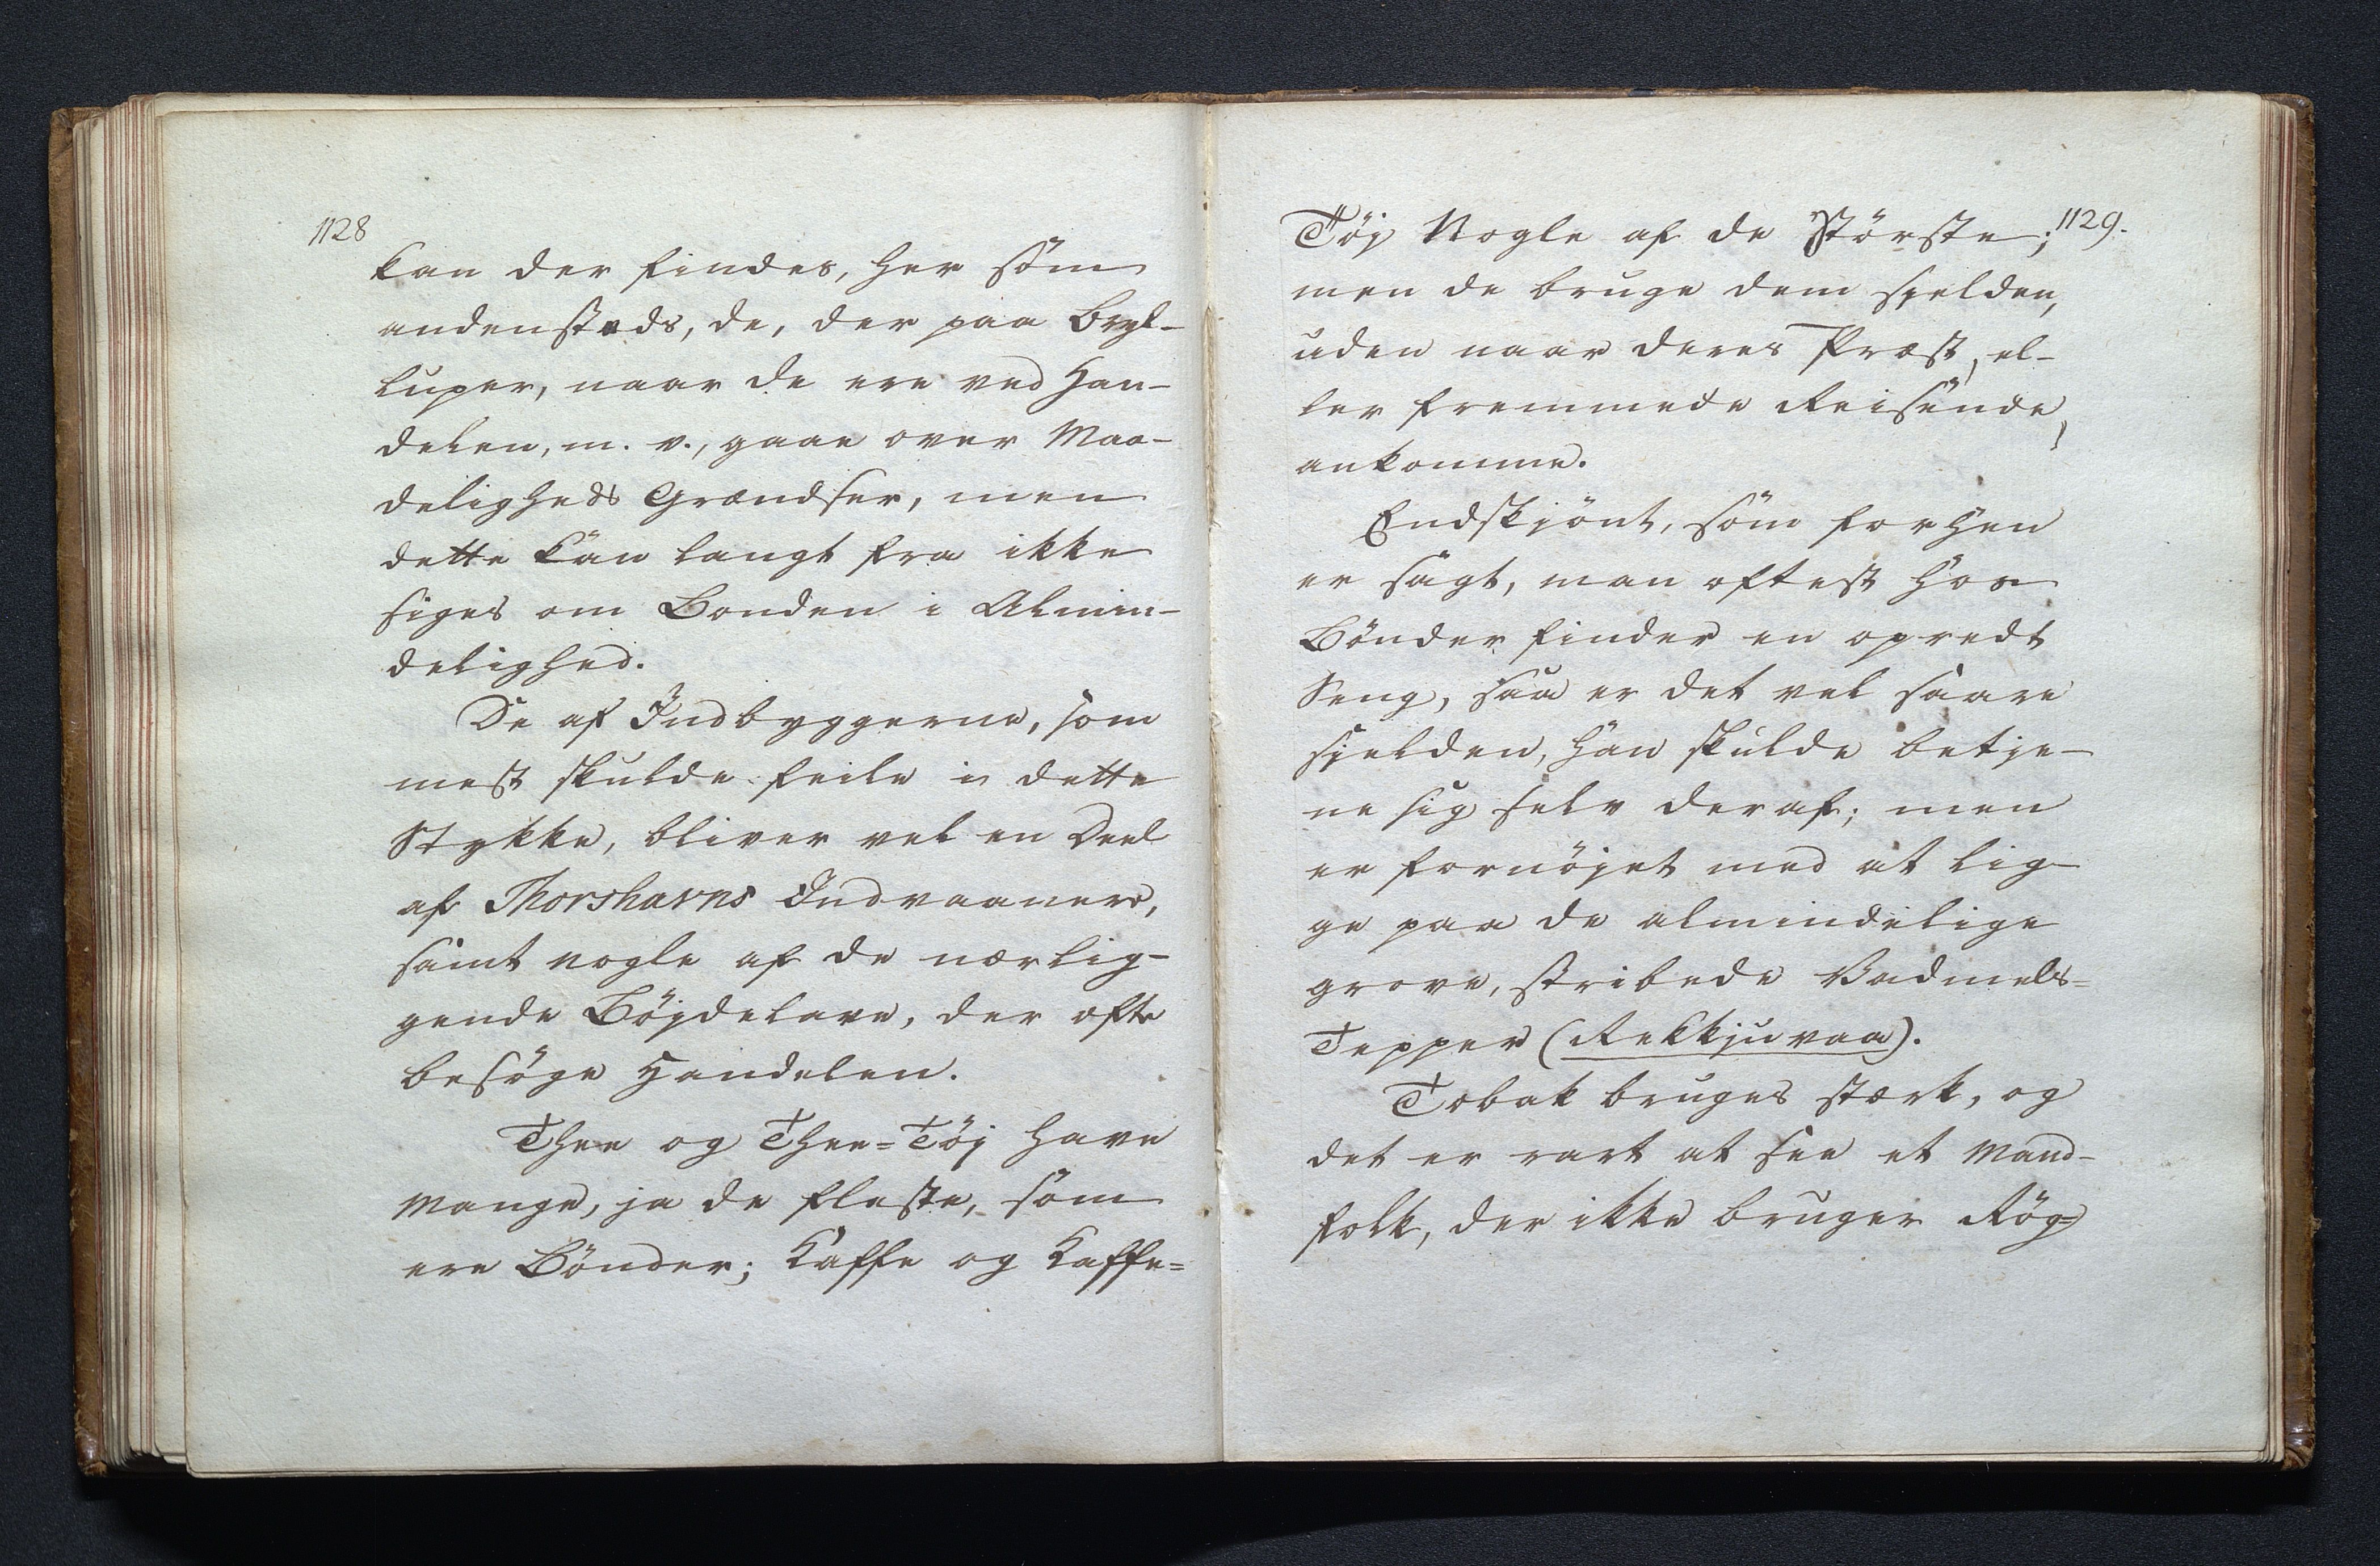 1128
kan der findes, her som
andensteds, de, der paa Bryl-
luper, naar de ere ved Han-
delen, m. v., gaae over Maa-
deligheds Grændser, men
dette kan langt fra ikke
siges om Bonden i Almin-
delighed.
De af Indbyggerne, som
mest skulde feile i dette
Stykke, bliver vel en Deel
af Thorshavns Indvaanere,
samt nogle af de nærlig-
gende Böjdelave, der ofte
besöge Handelen.
Thee og Thee=Töj have
Mange, ja de fleste, som
ere Bönder; Kaffe og Kaffe=
1129.
Töj Nogle af de Störste;
men de bruge dem sjelden,
uden naar deres Præst, el-
ler fremmede Reisende,
ankomme.
Endskjönt, som forhen
er sagt, man oftest hos
Bönder finder en opredt
Seng, saa er det vel saare
sjelden, han skulde betje-
ne sig selv deraf; men
er fornöjet med at lig-
ge paa de almindelige
grove, stribede Vadmels=
Tepper (Rekkjuvaa).
Tobak bruges stærk, og
det er rart at see et Mand-
folk, der ikke bruger Rög=